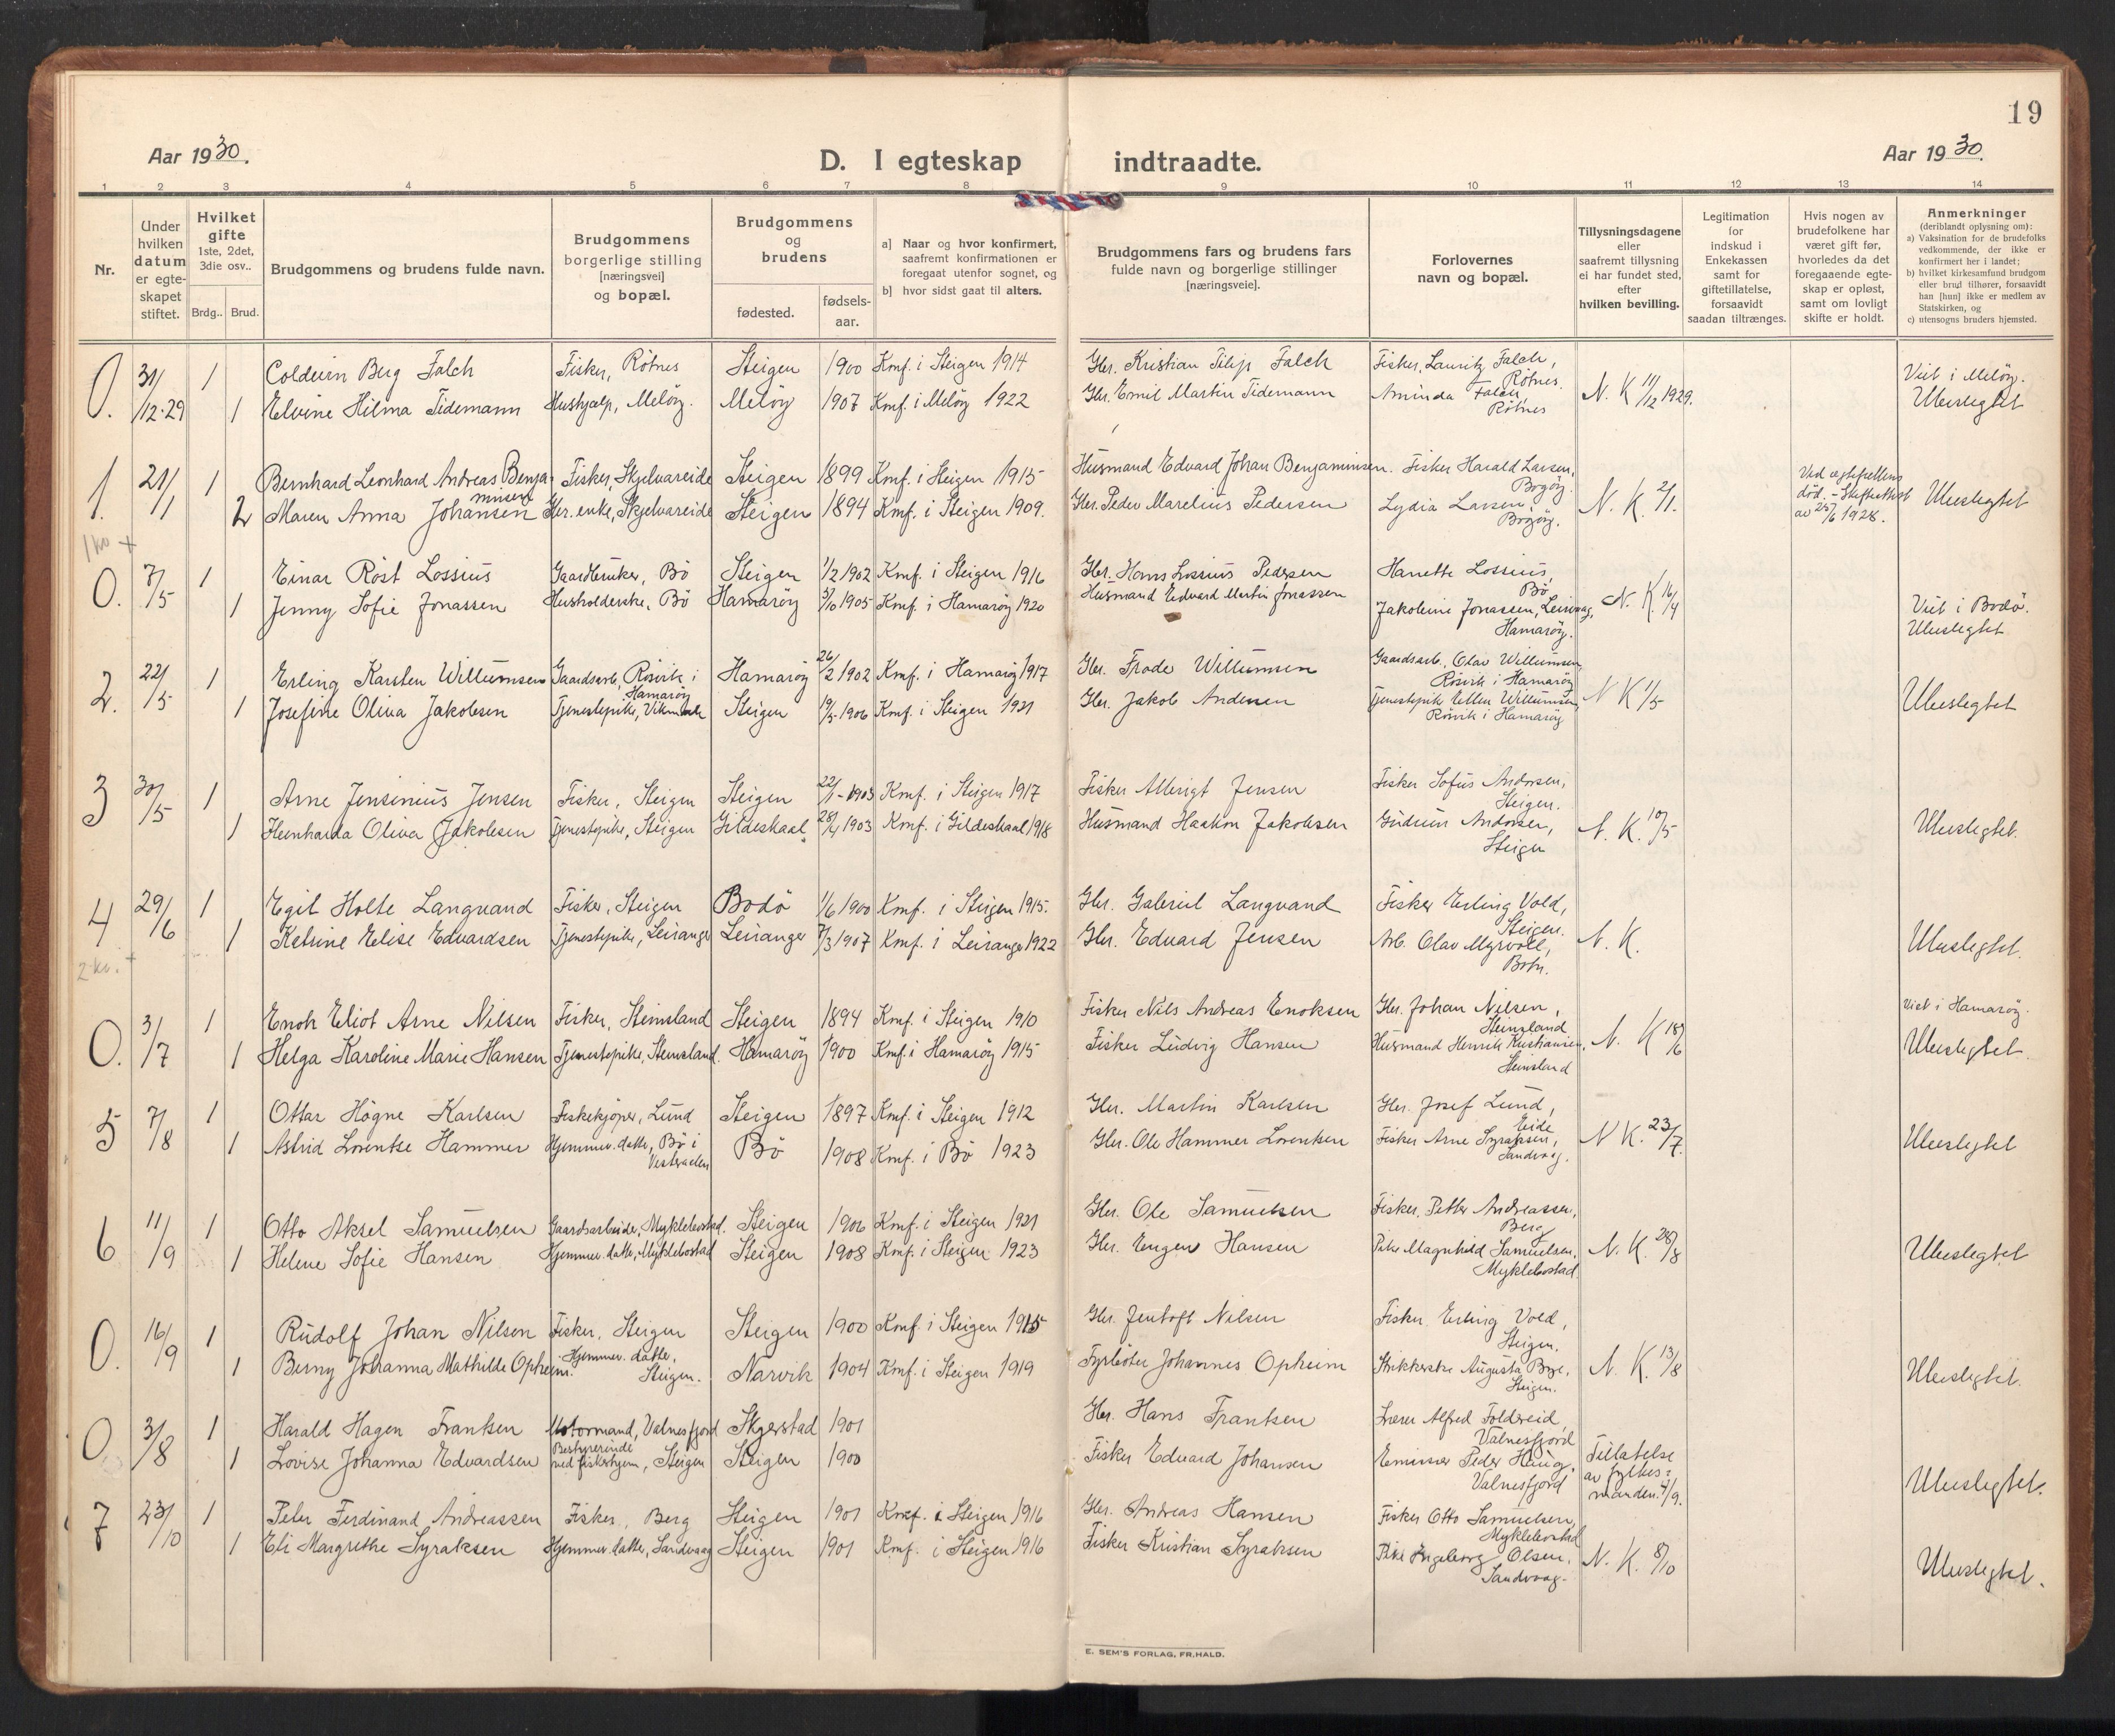 19
Aar 1930.
D. I egteskap indtraadte.
Aar 1930.
1 2 3 4 5 6 7 8 9 10 11 12 13 14
Nr.
Under hvilken datum er egteskapet stiftet.
Hvilket gifte 1ste, 2det, 3die osv..
Brdg.. Brud.
Brudgommens og brudens fulde navn.
Brudgommens borgerlige stilling [næringsvei] og bopæl.
Brudgommens og brudens
fødested. fødselsaar.
a] Naar og hvor konfirmert, saafremt konfirmationen er foregaat utenfor sognet, og
b] hvor sidst gaat til alters.
Brudgommens fars og brudens fars fulde navn og borgerlige stillinger [næringsveie].
Forlovernes navn og bopæl.
Tillysningsdagene eller saafremt tillysning ei har fundet sted, efter hvilken bevilling.
Legitimation for indskud i Enkekassen samt for giftetillatelse, forsaavidt saadan tiltrænges.
Hvis nogen av brudefolkene har været gift før, hvorledes da det foregaaende egteskap er opløst, samt om lovligt skifte er holdt.
Anmerkninger (deriblandt oplysning om):
a) Vaksination for de brudefolks vedkommende, der ikke er konfirmert her i landet;
b) hvilket kirkesamfund brudgom eller brud tilhører, forsaavidt han [hun] ikke er medlem av Statskirken, og
c) utensogns bruders hjemsted.
0. 31/12-29 1 Falch Fisker, Rötnes Steigen 1900 Konf. i Steigen 1914 Gbr. Kristian Filip Falch Fisker, Lauritz Falch, Rötnes. N. K 11/12 1929. Viet i Melöy.
1 Elvine Hilma Tidemann Hushjælp, Melöy. Melöy 1907 Konf. i Melöy 1922 Gbr. Emil Martin Tidemann Aminda Falch, Rötnes Ubeslegtet
1. 21/1 1 Bernhard Leonhard Andreas Benjaminsen Fisker, Skjelvareide Steigen 1899 Konf. i Steigen 1915 Husmand Edvard Johan Benjaminsen. Fisker Harald Larsen, Bogöy. N. K. 2/1. Ved egtefellens död. - Skifteattest av 25/6 1928. Ubeslegtet
2 Maren Anna Johansen Gbr. enke, Skjelvareide Steigen 1894 Konf. i Steigen 1909. Gbr. Peder Marelius Pedersen Lydia Larsen, Bogöy.
1 ko +
0. 7/5 1 Einar Röst Lossius Gaardbruker, Bö Steigen 1/2 1902 Konf. i Steigen 1916 Gbr. Hans Lossius Pedersen Hanette Lossius, Bö N. K 16/4
1 Jenny Sofie Jonassen Husholderske, Bö Hamaröy 3/10 1905 Konf. i Hamaröy 1920 Husmand Edvard Martin Jonassen Jakobine Jonassen, Hamaröy. Viet i Bodö. Ubeslegtet
2. 22/5 1 Erling Karsten Willumsen Gaardsarb, Rösvik i Hamaröy Hamaröy 26/2 1902 Konf. i Hamaröy 1917 Gbr. Frode Willumsen Gaardsarb, Olav Willumsen, Rösvik i Hamaröy N K 1/5 Ubeslegtet
1 Josefine Oliva Jakobsen Tjenestepike, Steigen 19/5 1906 Konf. i Steigen 1921 Gbr. Jakob Andersen Tjenestepike Ellen Willumsen, Rösvik i Hamaröy
3 30/5 1 Arne Jensinius Jensen Fisker, Steigen Steigen 22/1-1903 Konf. i Steigen 1917 Fisker Albrigt Jensen Fisker Sofus Andorsen, Steigen. N. K. 10/5 Ubeslegtet.
1 Heinharda Oliva Jakobsen Tjenestepike, Steigen Gildeskaal 28/4 1903 Konf. i Gildeskaal 1918 Husmand Haakon Jakobsen Gudrun Andorsen, Steigen
4 29/6 1 Egil Holte Langvand Fisker, Steigen Bodö 1/6 1900 Konf. i Steigen 1915. Gbr. Gabriel Langvand Fisker Erling Vold, Steigen. N. K. Ubeslegtet.
1 Katrine Elise Edvardsen Tjenestepike, Leiranger Leiranger 7/3 1907 Konf. i Leiranger 1922 Gbr. Edvard Jensen Arb. Olav Myrvoll, Botn.
2 ko. +
0. 3/7 1 Enok Eliot Arne Nilsen Fisker, Steinsland Steigen 1894 Konf. i Steigen 1910 Fisker Nils Andreas Enoksen Gbr. Johan Nilsen, Steinsland N. K 18/6 Viet i Hamaröy.
1 Helga Karoline Marie Hansen Tjenestepike, Steinsland. Hamaröy 1900 Konf. i Hamaröy 1915 Fisker Ludvig Hansen Husmand Henrik Kristiansen, Steinsland Ubeslegtet
5 7/8 1 Ottar Högne Karlsen Fiskekjöper, Lund Steigen 1897 Konf. i Steigen 1912 Gbr. Martin Karlsen Gbr. Josef Lund, Eide N K. 23/7. Ubeslegtet
1 Astrid Lorentse Hammer Hjemmev. datter, Bö i Vesteraalen Bö 1908 Konf. i Bö 1923 Gbr. Ole Hammer Lorentsen Fisker Arne Syraksen, Sandvaag.
6 11/9 1 Otto Aksel Samuelsen Gaardsarbeider, Myklebostad. Steigen 1906 Konf. i Steigen 1921 Gbr. Ole Samuelsen Fisker, Petter Andreassen, Berg N. K. 28/8 Ubeslegtet
1 Helene Sofie Hansen Hjemmev. datter, Myklebostad Steigen 1908 Konf. i Steigen 1923 Gbr. Eugen Hansen Pike Magnhild Samuelsen, Myklebostad
0. 16/9 1 Rudolf Johan Nilsen Fisker, Steigen Steigen 1900 Konf. i Steigen 1915 Gbr. Jentoft Nilsen Fisker, Erling Vold, Steigen. N. K. 13/8 Ubeslegtet.
1 Berny Johanna Mathilde Opheim. Hjemmev. datter, Steigen. Narvik 1904 Konf. i Steigen 1919 Fyrböter Johannes Opheim Strikkerske Augusta Steigen.
0. 3/8 1 Harald Hagen Frantsen Motormand, Valnesfjord Skjerstad 1901 Gbr. Hans Frantsen Lærer Alfred Foldveid, Valnesfjord Tillatelse av fylkesmanden. 4/9.
1 Lovise Johanna Edvardsen Bestyrerinde ved fiskerhjem, Steigen Steigen 1900 Fisker Edvard Johansen Emissær Peder Haug, Valnesfjord Ubeslegtet.
7 23/10 1 Peter Ferdinand Andreassen Fisker, Berg Steigen 1901 Konf. i Steigen 1916 Gbr. Andreas Hansen Fisker Otto Samuelsen, Myklebostad N. K. 8/10 Ubeslegtet.
1 Eli Margrethe Syraksen Hjemmev. datter, Sandvaag Steigen 1901 Konf. i Steigen 1916 Fisker Kristian Syraksen Pike Ingeborg Olsen, Sandvaag.
E. SEM'S FORLAG, FR.HALD.